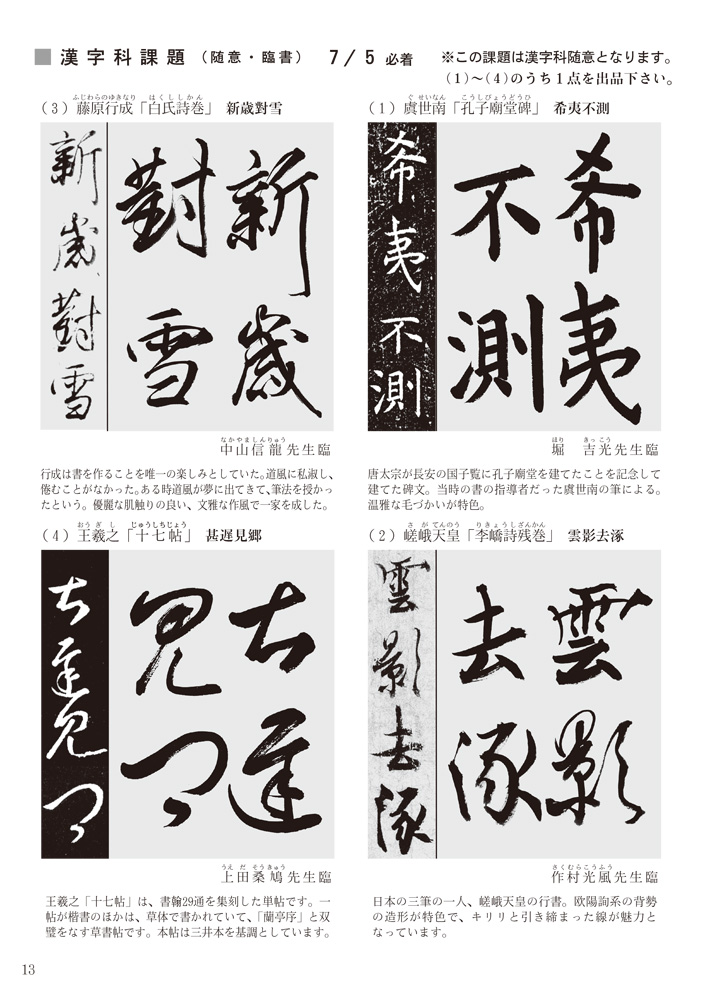 ■ 漢字科課題 （随意・臨書） 7／5 必着
※この課題は漢字科随意となります。
（1）〜（4）のうち１点を出品下さい。
ぐせいなん こうしびょうどうひ
（1）虞世南「孔子廟堂碑」 希夷不測
希夷不測
希夷
不測
ほり きっこう
堀 吉光先生臨
唐太宗が長安の国子覧に孔子廟堂を建てたことを記念して
建てた碑文。当時の書の指導者だった虞世南の筆による。
温雅な毛づかいが特色。
さがてんのう りきょうしざんかん
（2）嵯峨天皇「李嶠詩残巻」 雲影去涿
雲影去涿
雲影
去涿
さくむらこうふう
作村光風先生臨
日本の三筆の一人、嵯峨天皇の行書。欧陽詢系の背勢
の造形が特色で、キリリと引き締まった線が魅力と
なっています。
ふじわらのゆきなり はくししかん
（3）藤原行成「白氏詩巻」 新歳對雪
新歳對雪
新歳
對雪
なかやましんりゅう
中山信龍先生臨
行成は書を作ることを唯一の楽しみとしていた。道風に私淑し、
倦むことがなかった。ある時道風が夢に出てきて、筆法を授かっ
たという。優麗な肌触りの良い、文雅な作風で一家を成した。
おうぎし じゅうしちじょう
（4）王羲之「十七帖」 甚遅見郷
甚遅見郷
甚遅
見郷
うえだそうきゅう
上田桑鳩先生臨
王羲之「十七帖」は、書翰29通を集刻した単帖です。一
帖が楷書のほかは、草体で書かれていて、「蘭亭序」と双
璧をなす草書帖です。本帖は三井本を基調としています。
13